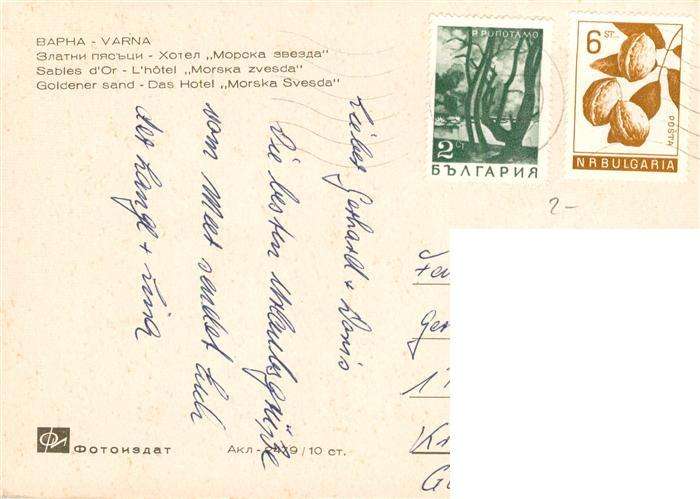 ВАРНА - VARNA
Златни пясъци - Хотел „Морска звезда"
Sables d'Or - L'hôtel „Morska zvesda"
Goldener sand - Das Hotel „Morska Svesda"
Р. РОПОТАМО
2 СТ
БЪЛГАРИЯ
6 ST.
POŠTA
N R BULGARIA
2-
Lieber Gerhard + Doris
Die besten Urlaubsgrüße
vom Meer sendet Euch
der lange +
Фотоиздат
Акл - 2479 / 10 ст.